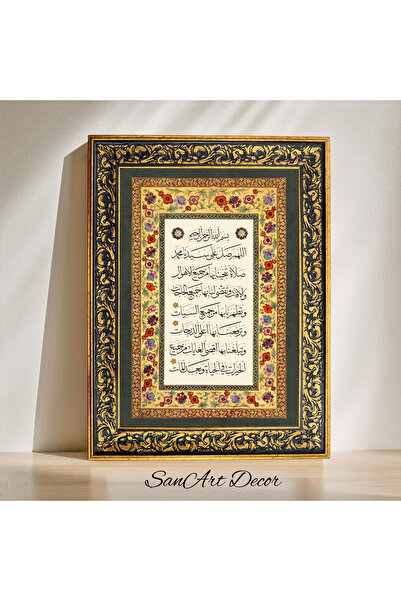 بسم الله الرحمن الرحيم
اللهم صل على سيدنا محمد
صلاة تنجينا بها من جميع الاهوال
والآفات وتقضي لنا بها جميع الحاجات
وتطهرنا بها من جميع السيئات
وترفعنا بها اعلى الدرجات
وتبلغنا بها اقصى الغايات من جميع
الخيرات في الحياة وبعد الممات
SanArt Decor